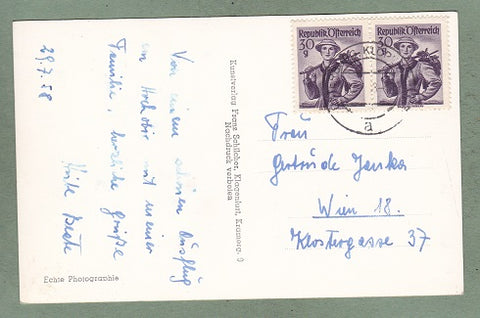 29.7.58
Von einem schönen Ausflug
am Hochobir mit meiner
Familie, herzliche Grüße
Beate
Echte Photographie
Kunstverlag Franz Schilcher, Klagenfurt, Kramerg. 6
Nachdruck verboten
Republik Österreich
30
g
Republik Österreich
30
g
a
Frau
Gertrude Janka
Wien 18.
Klostergasse 37